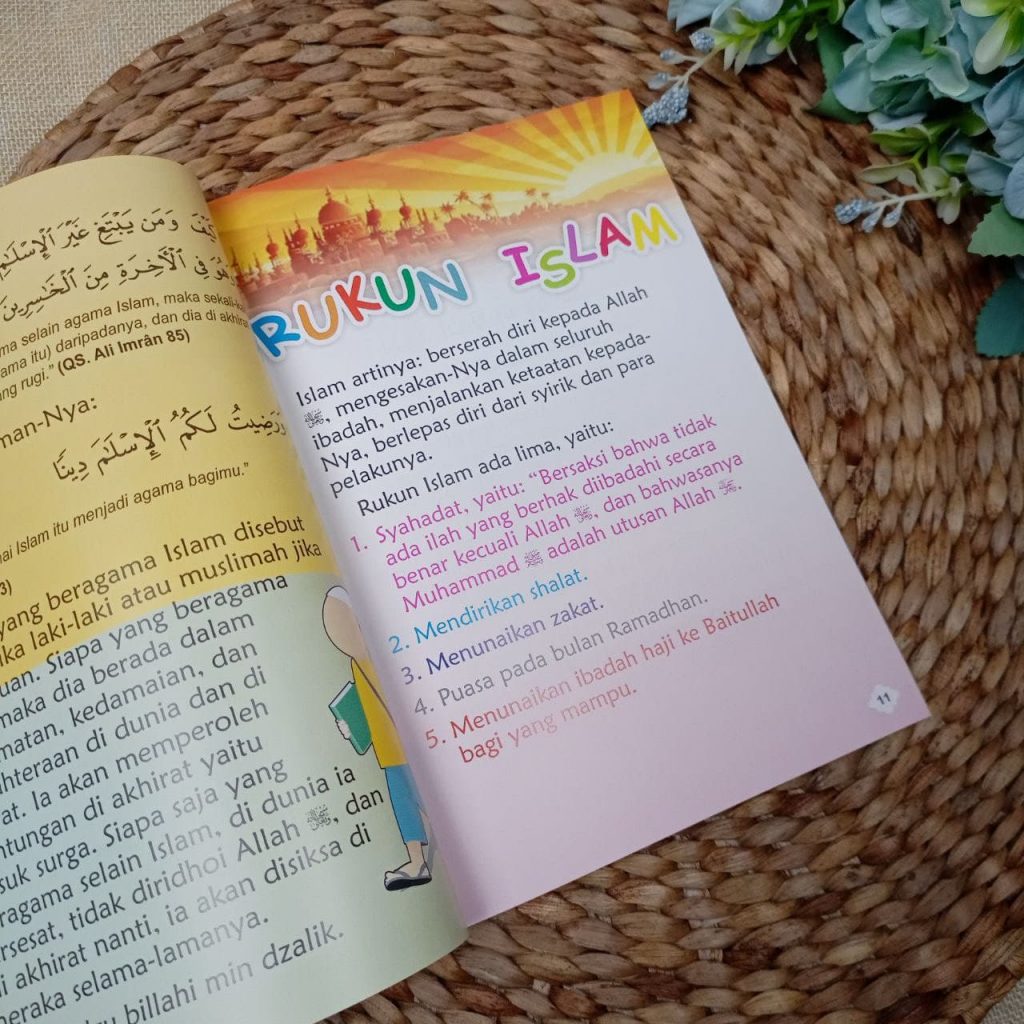 وَمَن يَبْتَغِ غَيْرَ ٱلْإِسْلَٰمِ
فِى ٱلْأَخِرَةِ مِنَ ٱلْخَٰسِرِينَ
selain agama Islam, maka
itu) daripadanya, dan dia di akhirat
rugi.” (QS. Ali Imrân 85)
man-Nya:
وَرَضِيتُ لَكُمُ ٱلْإِسْلَٰمَ دِينًا
Islam itu menjadi agama bagimu.”
3)
yang beragama Islam disebut
laki-laki atau muslimah jika
Siapa yang beragama
maka dia berada dalam
kedamaian, dan
di dunia dan di
Ia akan memperoleh
di akhirat yaitu
surga. Siapa saja yang
selain Islam, di dunia ia
tidak diridhoi Allah ﷻ, dan
akhirat nanti, ia akan disiksa di
selama-lamanya.
billahi min dzalik.
RUKUN ISLAM
Islam artinya: berserah diri kepada Allah
ﷻ, mengesakan-Nya dalam seluruh
ibadah, menjalankan ketaatan kepada-
Nya, berlepas diri dari syirik dan para
pelakunya.
Rukun Islam ada lima, yaitu:
1. Syahadat, yaitu: “Bersaksi bahwa tidak
ada ilah yang berhak diibadahi secara
benar kecuali Allah ﷻ, dan bahwasanya
Muhammad ﷺ adalah utusan Allah ﷻ.
2. Mendirikan shalat.
3. Menunaikan zakat.
4. Puasa pada bulan Ramadhan.
5. Menunaikan ibadah haji ke Baitullah
bagi yang mampu.
11